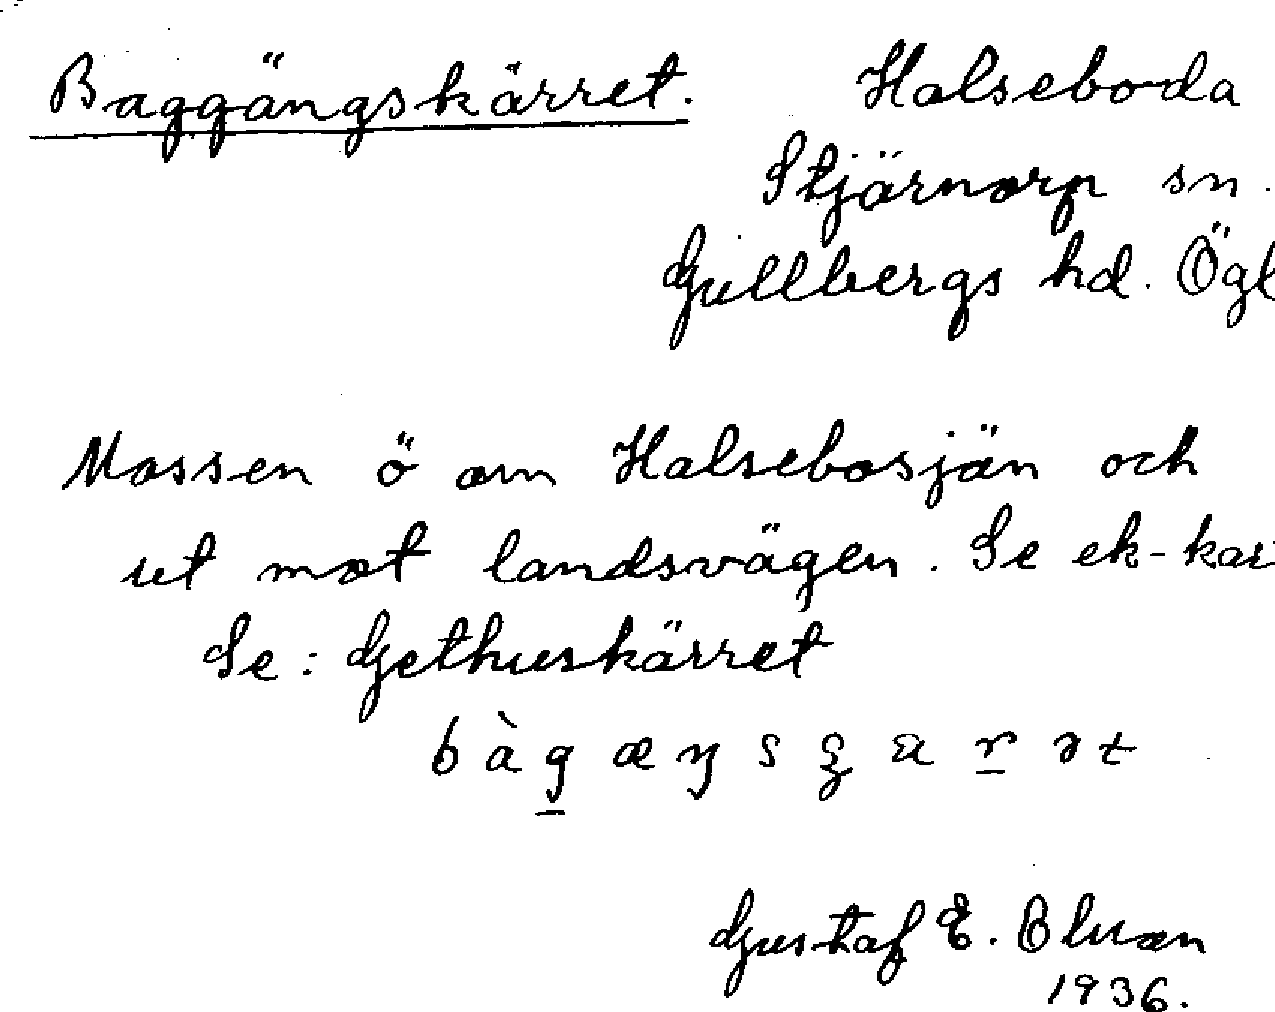 Baggängskärret. Halseboda
Stjärnorp sn.
Gullbergs hd. Ögl
Mossen ö om Halsebosjön och
ut mot landsvägen. Se ek-kar
Se: Gethuskärret
Gustaf E. Bluon
1936.